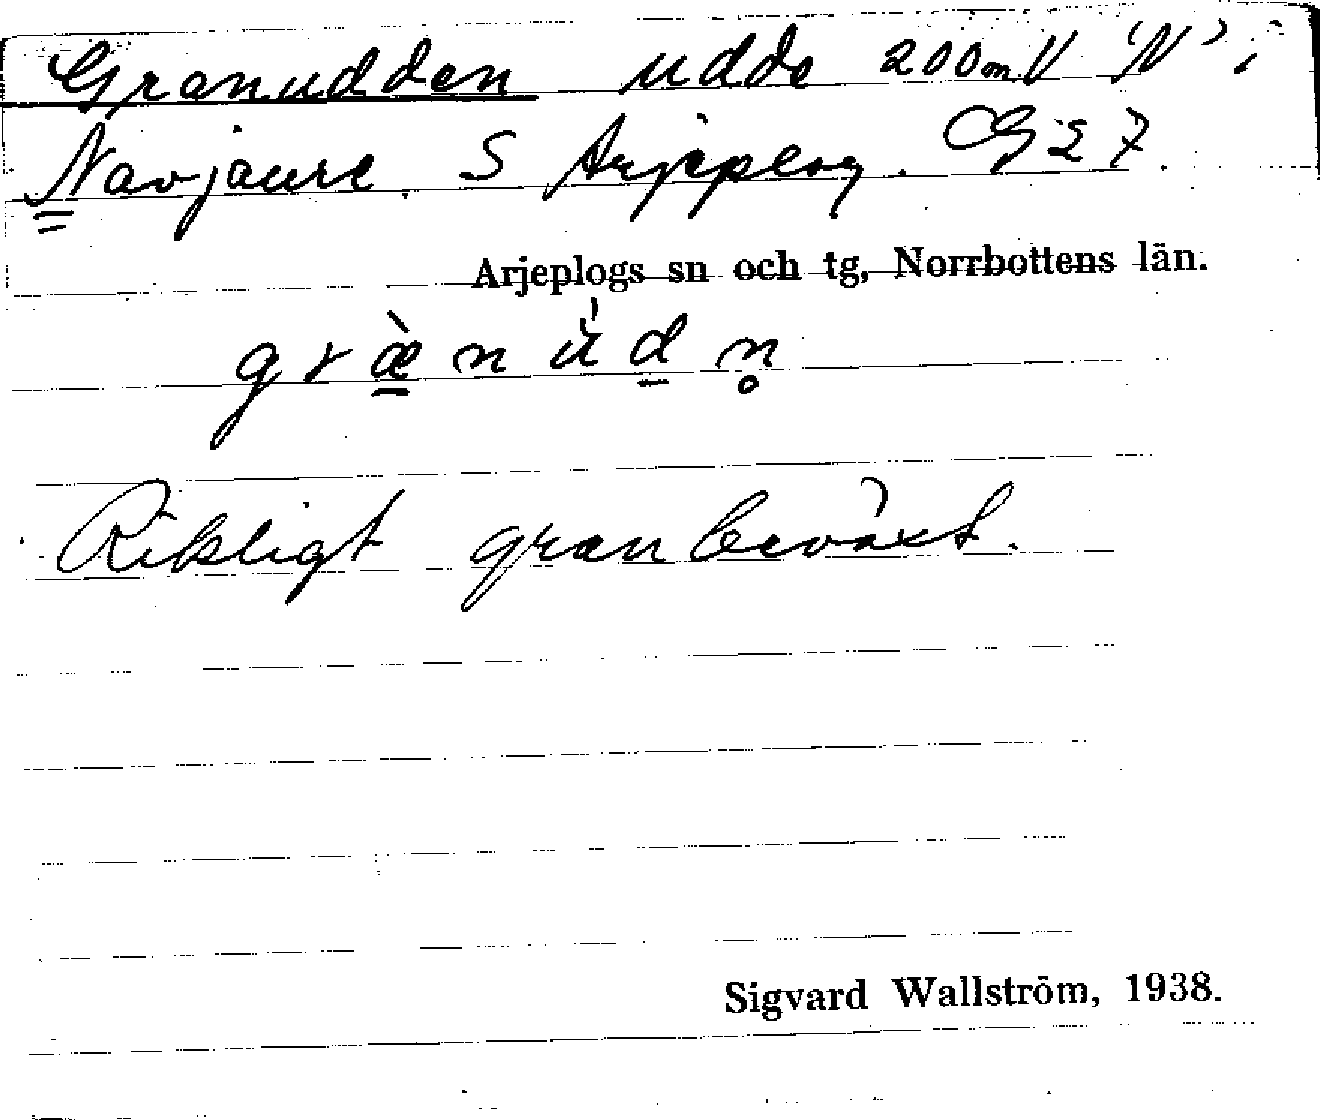 Granudden udde 200m V 'N' i
Navjaure S Arjeplog. G27.
Arjeplogs sn och tg, Norrbottens län.
græ̀nùdn̥
Rikligt granbeväxt.
Sigvard Wallström, 1938.